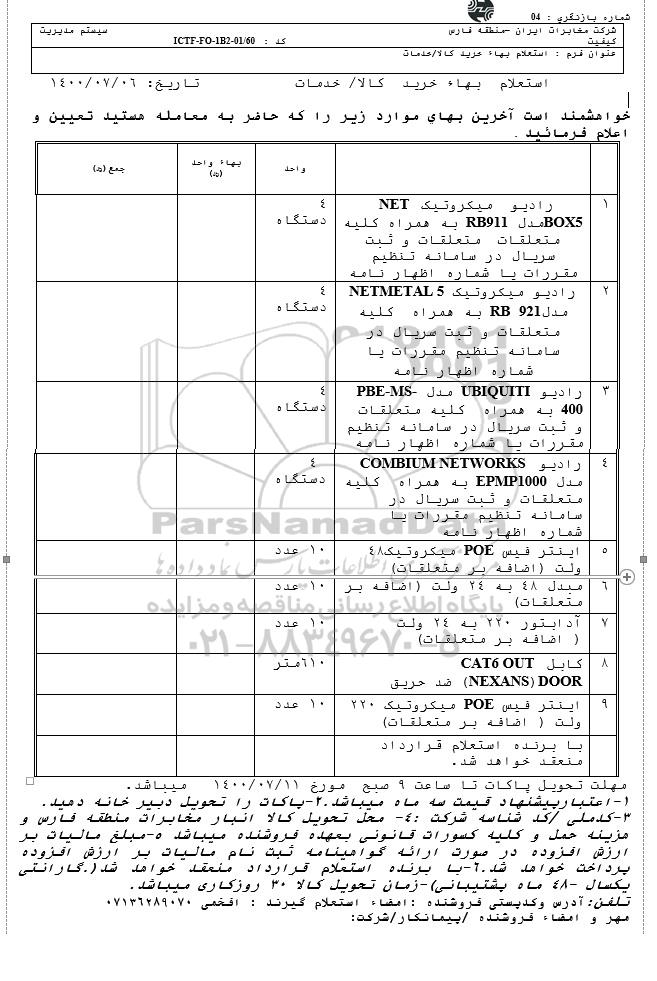 شماره بازنگري : 04
شرکت مخابرات ایران -منطقه فارس
سیستم مدیریت
کیفیت
کد : ICTF-FO-1B2-01/60
عنوان فرم : استعلام بهاء خرید کالا/خدمات
استعلام بهاء خرید کالا/ خدمات
تاریخ: ۱٤۰۰/۰۷/۰٦
خواهشمند است آخرین بهاي موارد زیر را که حاضر به معامله هستید تعیین و
اعلام فرمائید .
واحد
بهاء واحد
(ریال)
جمع (ریال)
۱
رادیو میکروتیک NET
BOX5مدل RB911 به همراه کلیه
متعلقات متعلقات و ثبت
سریال در سامانه تنظیم
مقررات یا شماره اظهار نامه
٤
دستگاه
۲
رادیو میکروتیک NETMETAL 5
مدلRB 921 به همراه کلیه
متعلقات و ثبت سریال در
سامانه تنظیم مقررات یا
شماره اظهار نامه
٤
دستگاه
۳
رادیو UBIQUITI مدل PBE-MS-
400 به همراه کلیه متعلقات
و ثبت سریال در سامانه تنظیم
مقررات یا شماره اظهار نامه
٤
دستگاه
٤
رادیو COMBIUM NETWORKS
مدل EPMP1000 به همراه کلیه
متعلقات و ثبت سریال در
سامانه تنظیم مقررات یا
شماره اظهار نامه
٤
دستگاه
۵
اینتر فیس POE میکروتیک٤۸
ولت (اضافه بر متعلقات)
۱۰ عدد
٦
مبدل ٤۸ به ۲٤ ولت (اضافه بر
متعلقات)
۱۰ عدد
۷
آدابتور ۲۲۰ به ۲٤ ولت
( اضافه بر متعلقات)
۱۰ عدد
۸
کابل CAT6 OUT
DOOR (NEXANS) ضد حریق
٦۱۰متر
۹
اینتر فیس POE میکروتیک ۲۲۰
ولت ( اضافه بر متعلقات)
۱۰ عدد
با برنده استعلام قرارداد
منعقد خواهد شد.
ParsNamadData
پارس نماد داده ها
پایگاه اطلاع رسانی مناقصه و مزایده
۰۲۱-۸۸۳۴۹۶۷۰-۵
مهلت تحویل پاکات تا ساعت ۹ صبح مورخ ۱٤۰۰/۰۷/۱۱ میباشد.
۱-اعتبارپیشنهاد قیمت سه ماه میباشد.۲-پاکات را تحویل دبیر خانه دهید.
۳-کدملی /کد شناسه شرکت :٤- محل تحویل کالا انبار مخابرات منطقه فارس و
هزینه حمل و کلیه کسورات قانونی بعهده فروشنده میباشد ۵-مبلغ مالیات بر
ارزش افزوده در صورت ارائه گواهینامه ثبت نام مالیات بر ارزش افزوده
پرداخت خواهد شد.٦-با برنده استعلام قرارداد منعقد خواهد شد(.گارانتی
یکسال -٤۸ ماه پشتیبانی)-زمان تحویل کالا ۳۰ روزکاری میباشد.
تلفن:آدرس وکدپستی فروشنده :امضاء استعلام گیرند : افخمی ۰۷۱۳٦۲۸۹۰۷۰
مهر و امضاء فروشنده /پیمانکار/شرکت: